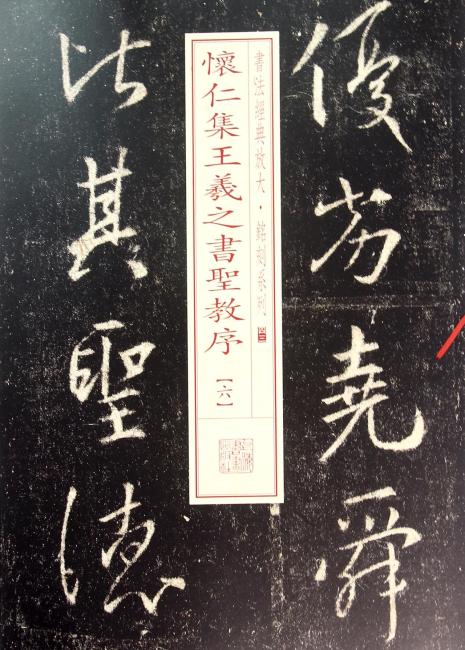 優劣堯舜
書法經典放大・銘刻系列
懷仁集王羲之書聖教序【六】
比其聖德